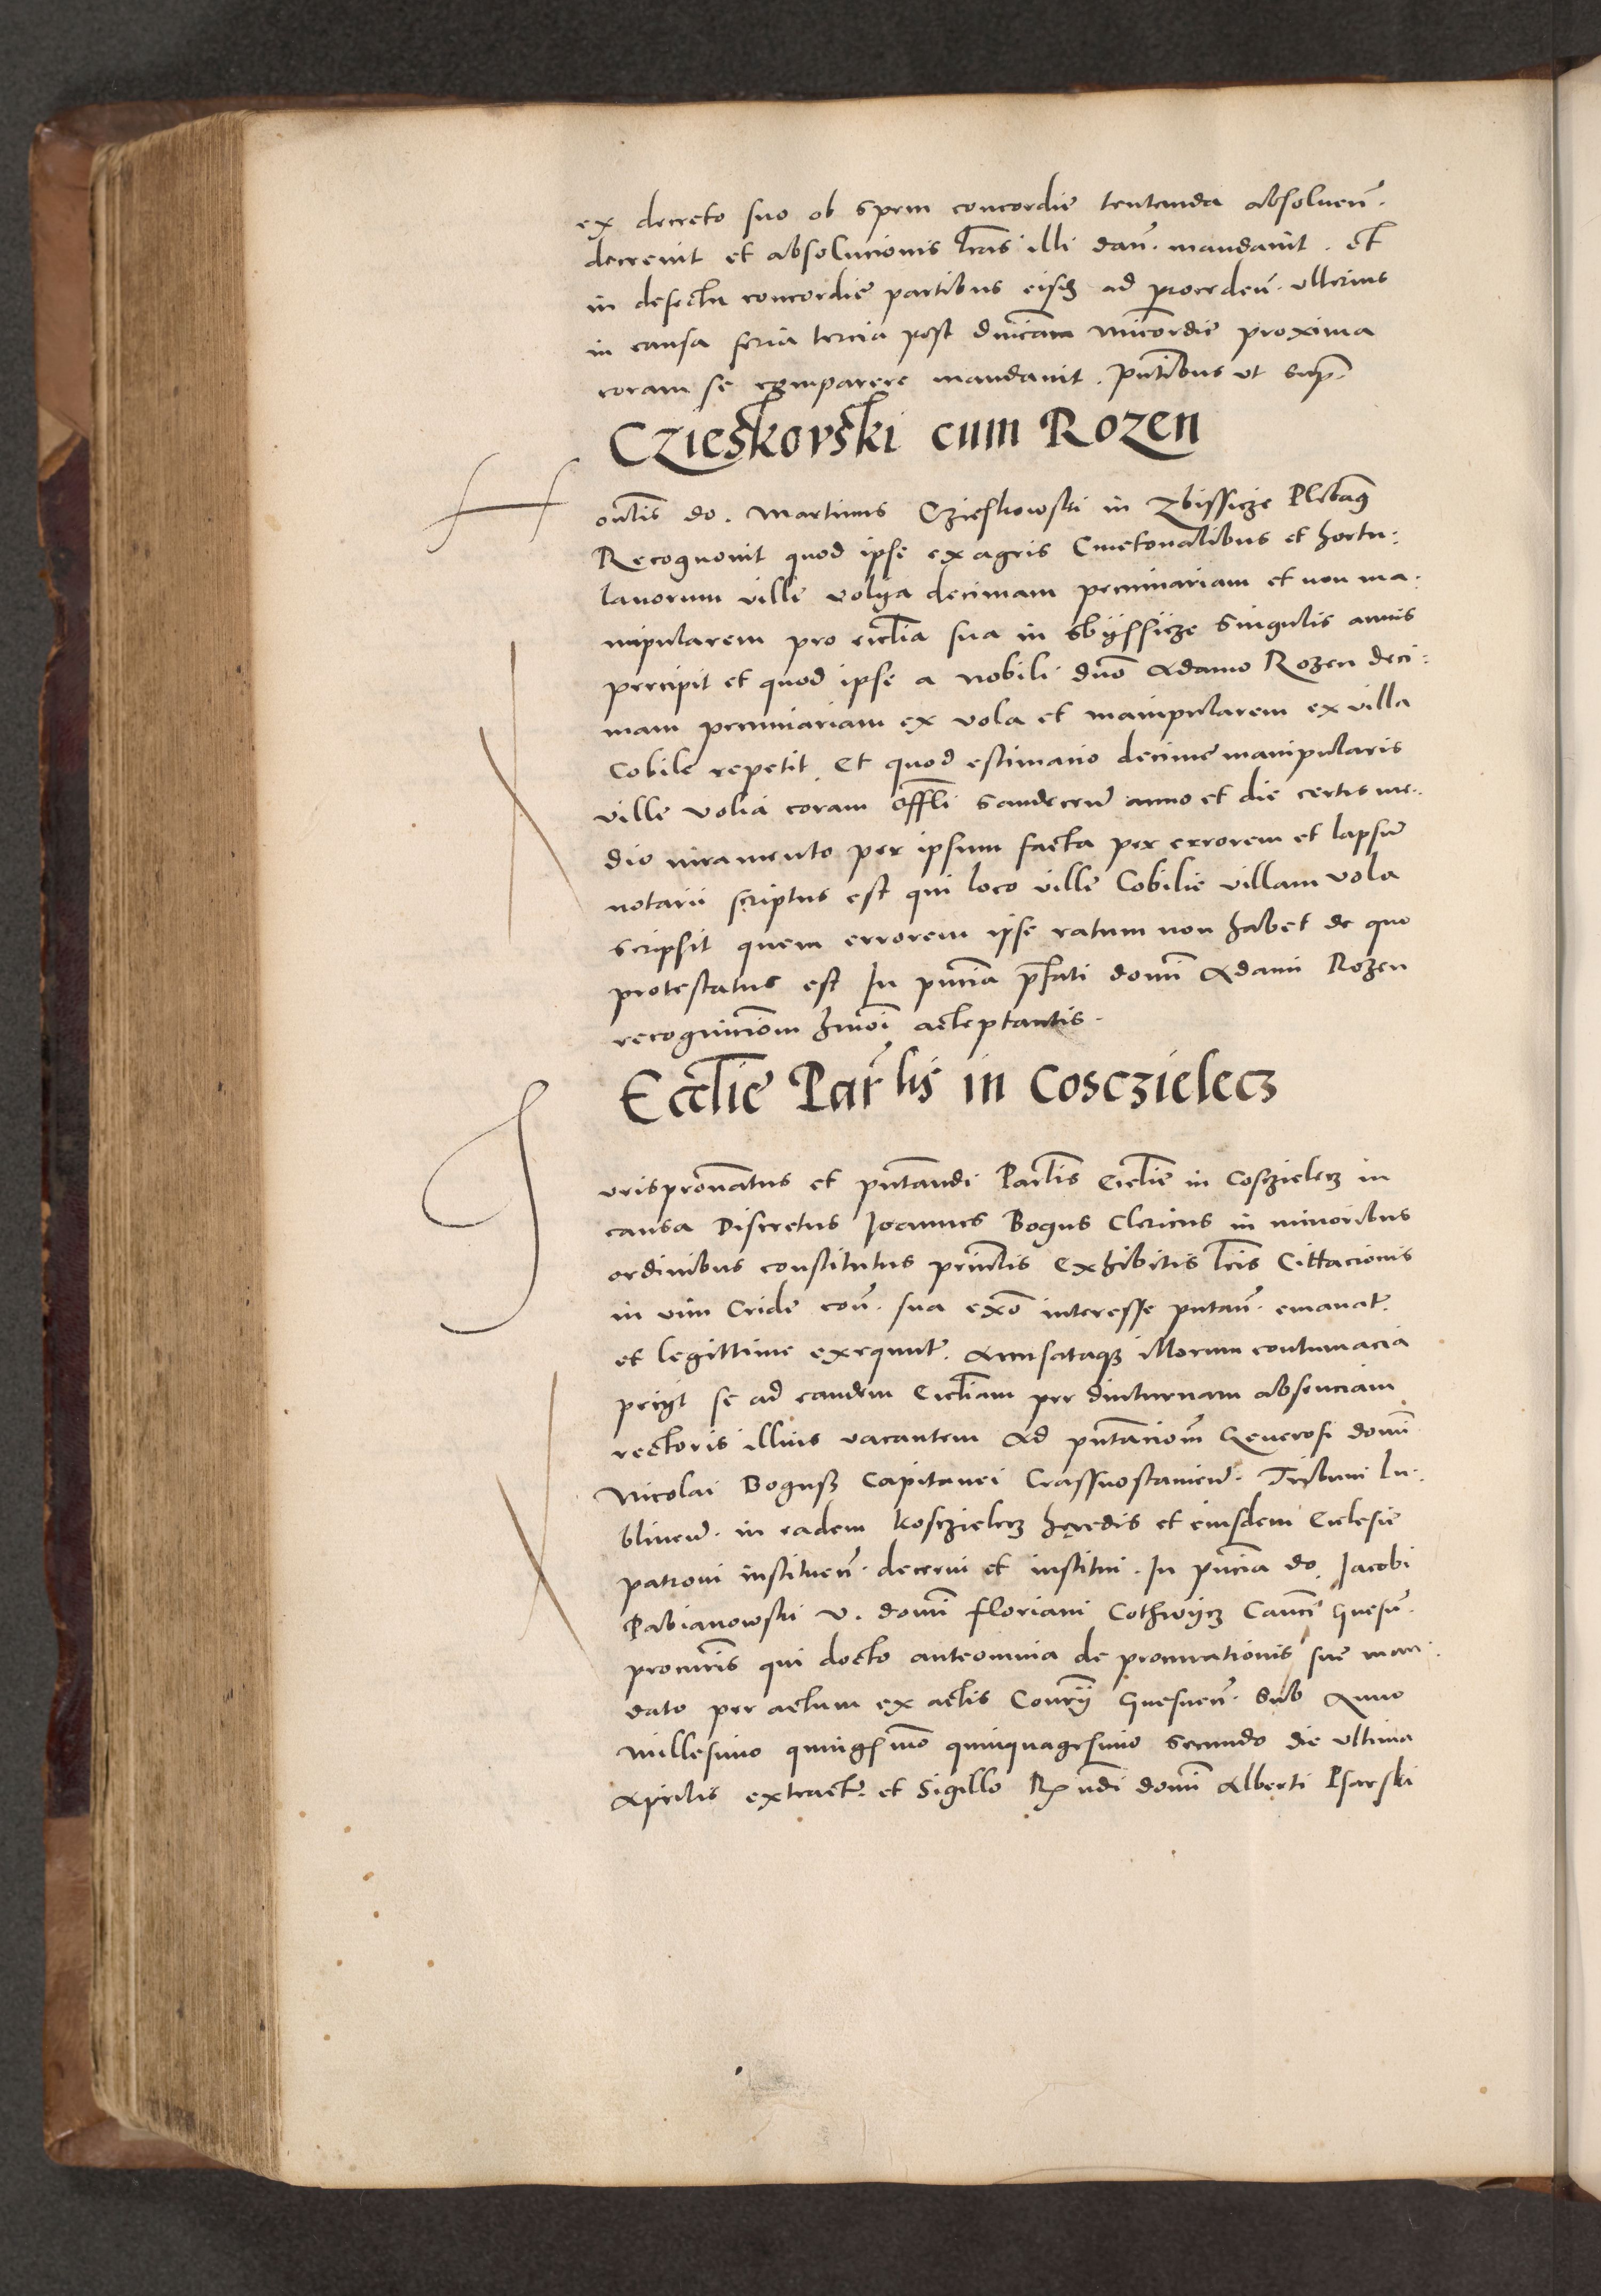 ex decreto suo ob spem concordie tentanda absoluen̄.
decreuit et absolucionis l̄ras illi dan̄. mandauit. et
in defectu concordie partibus eisdē ad proceden̄. vlterius
in causa feria tercia post dn̄icam mīcordie proxima
coram se comparere mandauit. pn̄tibus vt sup̄.
Czieskowski cum Rozen
Honōlis do. Martinus Czieskowski in Zbissicze Pleban9
Recognouit quod ipse ex agris Cmetonalibus et hortu:
lanorum ville volya decimam pecuniariam et non ma.
nipularem pro ecclīa sua in sbyssicze singulis annis
percipit et quod ipse a nobili dn̄o Adamo Rozen deci:
mam pecuniariam ex vola et manipularem ex villa
Cobile repetit. Et quod estimacio decime manipularis
ville volia coram offl̄i sandecen̄ anno et die certis me..
dio iuramento per ipsum facta per errorem et lapsū
notarii scriptus est qui loco ville Cobilie villam vola
scripsit quem errorem ipse ratum non habet de quo
protestatus est In pn̄cia p̄fati domī Adami Rozen
recognicīom hm̄oi acceptantis.
Eccl̄ie Par̄lis in Cosczielecz
Jurispron̄atus et pn̄tandi Parl̄is Eccl̄ie in Cosczielecz in
causa Discretus Joannes Bogus Clericus in minoribus
ordinibus constitutus prīnl̄is Exhibitis l̄ris Cittacionis
in vim Cride con̄. sua exō interesse putan̄. emanat̄.
et legittime exequut̄. Accusataq3 illorum contumacia
petyt se ad eandem Eccl̄iam per diuturnam absenciam
rectoris illius vacantem Ad pn̄tacīom Generosi domī
Nicolai Bogusz Capitanei Crassnostauien̄. Tribuni lu.
blinen̄. in eadem Kosczielecz heredis et eiusdem Ecclesie
patroni instituen̄. decerni et institui. In pn̄cia do. Jacobi
Pabianowski v. domī floriani Cothwycz Canci Gnesn̄.
procuris qui docto anteomnia de procurationis sue man.
dato per actum ex actis Consrÿ Gnesnen̄. Sub Anno
millesimo quingsimo quinquagesimo secundo die vltima
Aprilis extract̄. et Sigillo Rx ndi domī Alberti Psarski